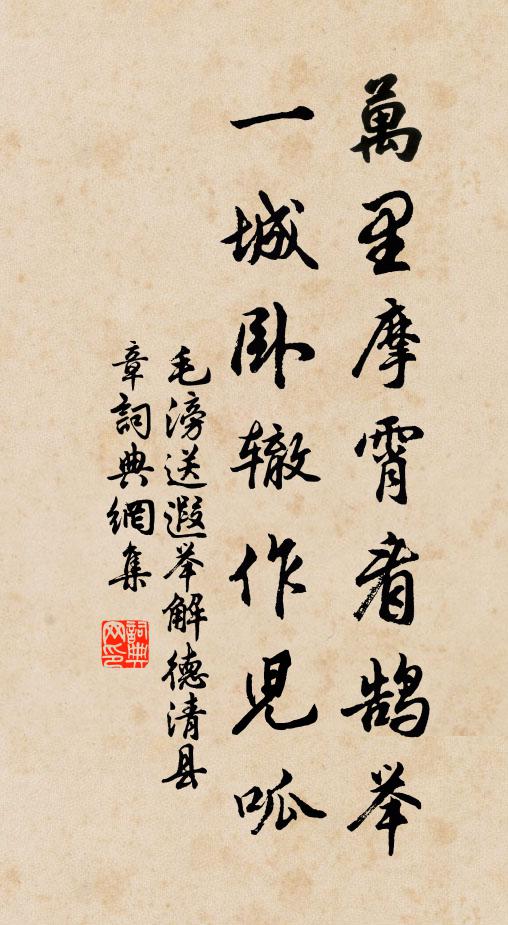 萬里摩霄看鹄举
一城卧辙作兒呱
毛滂送遐举解德清县
章詞典網集
詞典
网印